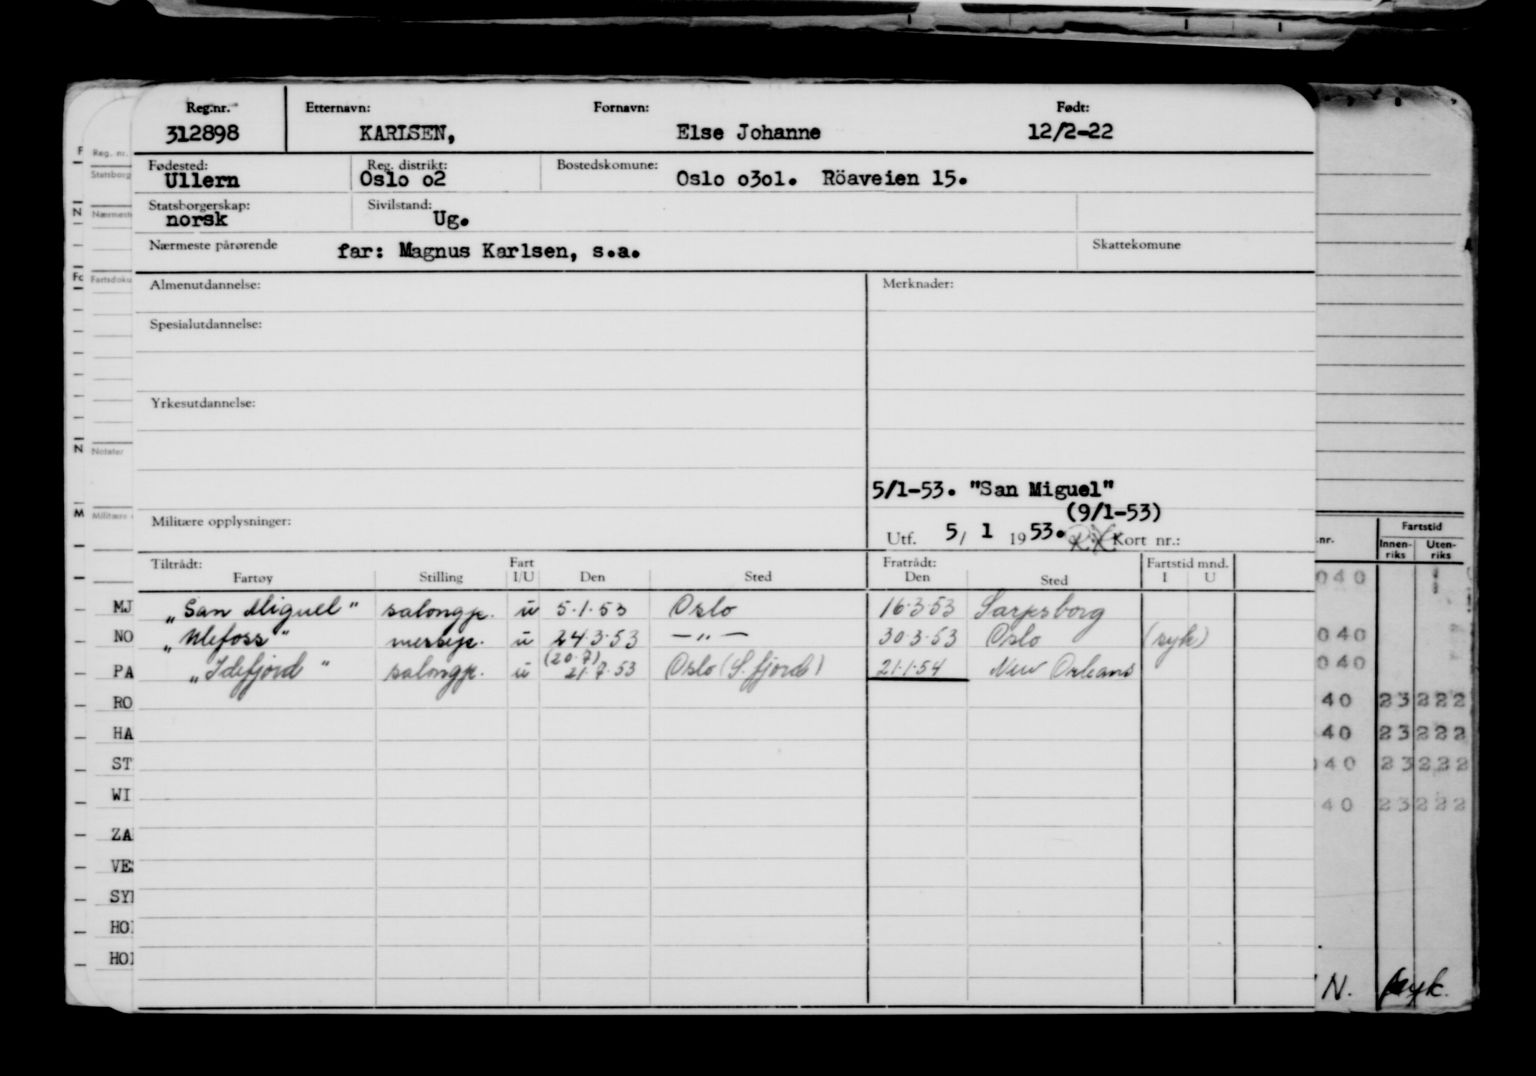 Reg.nr. Etternavn: Fornavn: Født:
312898 KARLSEN, Else Johanne 12/2-22
Fødested: Reg. distrikt: Bostedskomune:
Ullern Oslo o2 Oslo o3o1. Röaveien 15.
Statsborgerskap: Sivilstand:
norsk Ug.
Nærmeste pårørende far: Magnus Karlsen, s.a. Skattekomune
Almenutdannelse: Merknader:
Spesialutdannelse:
Yrkesutdannelse:
5/1-53. "San Miguel"
(9/1-53)
Militære opplysninger: Utf. 5/ 1 1953. Kort nr.:
Tiltrådt: Fart Fratrådt: Fartstid mnd.
Fartøy Stilling I/U Den Sted Den Sted I U
„San Miguel" salongp. u 5.1.53 Oslo 16.3.53 Sarpsborg
„Ulefoss" messep. u 24.3.53 —"— 30.3.53 Oslo (syk)
„Idefjord" salongp. u (20.7) 21.7.53 Oslo (S.fjord) 21.1.54 New Orleans
Reg. nr.
Statsborg
Nærmeste
Fartsdoku
Notater
Militære
MJ
NO
PA
RO
HA
ST
WI
ZA
VE
SY
HO
HO
.nr. Fartstid
Innen-riks Uten-riks
040
040
040
40 23 222
40 23 222
040 23 222
40 23 222
N.